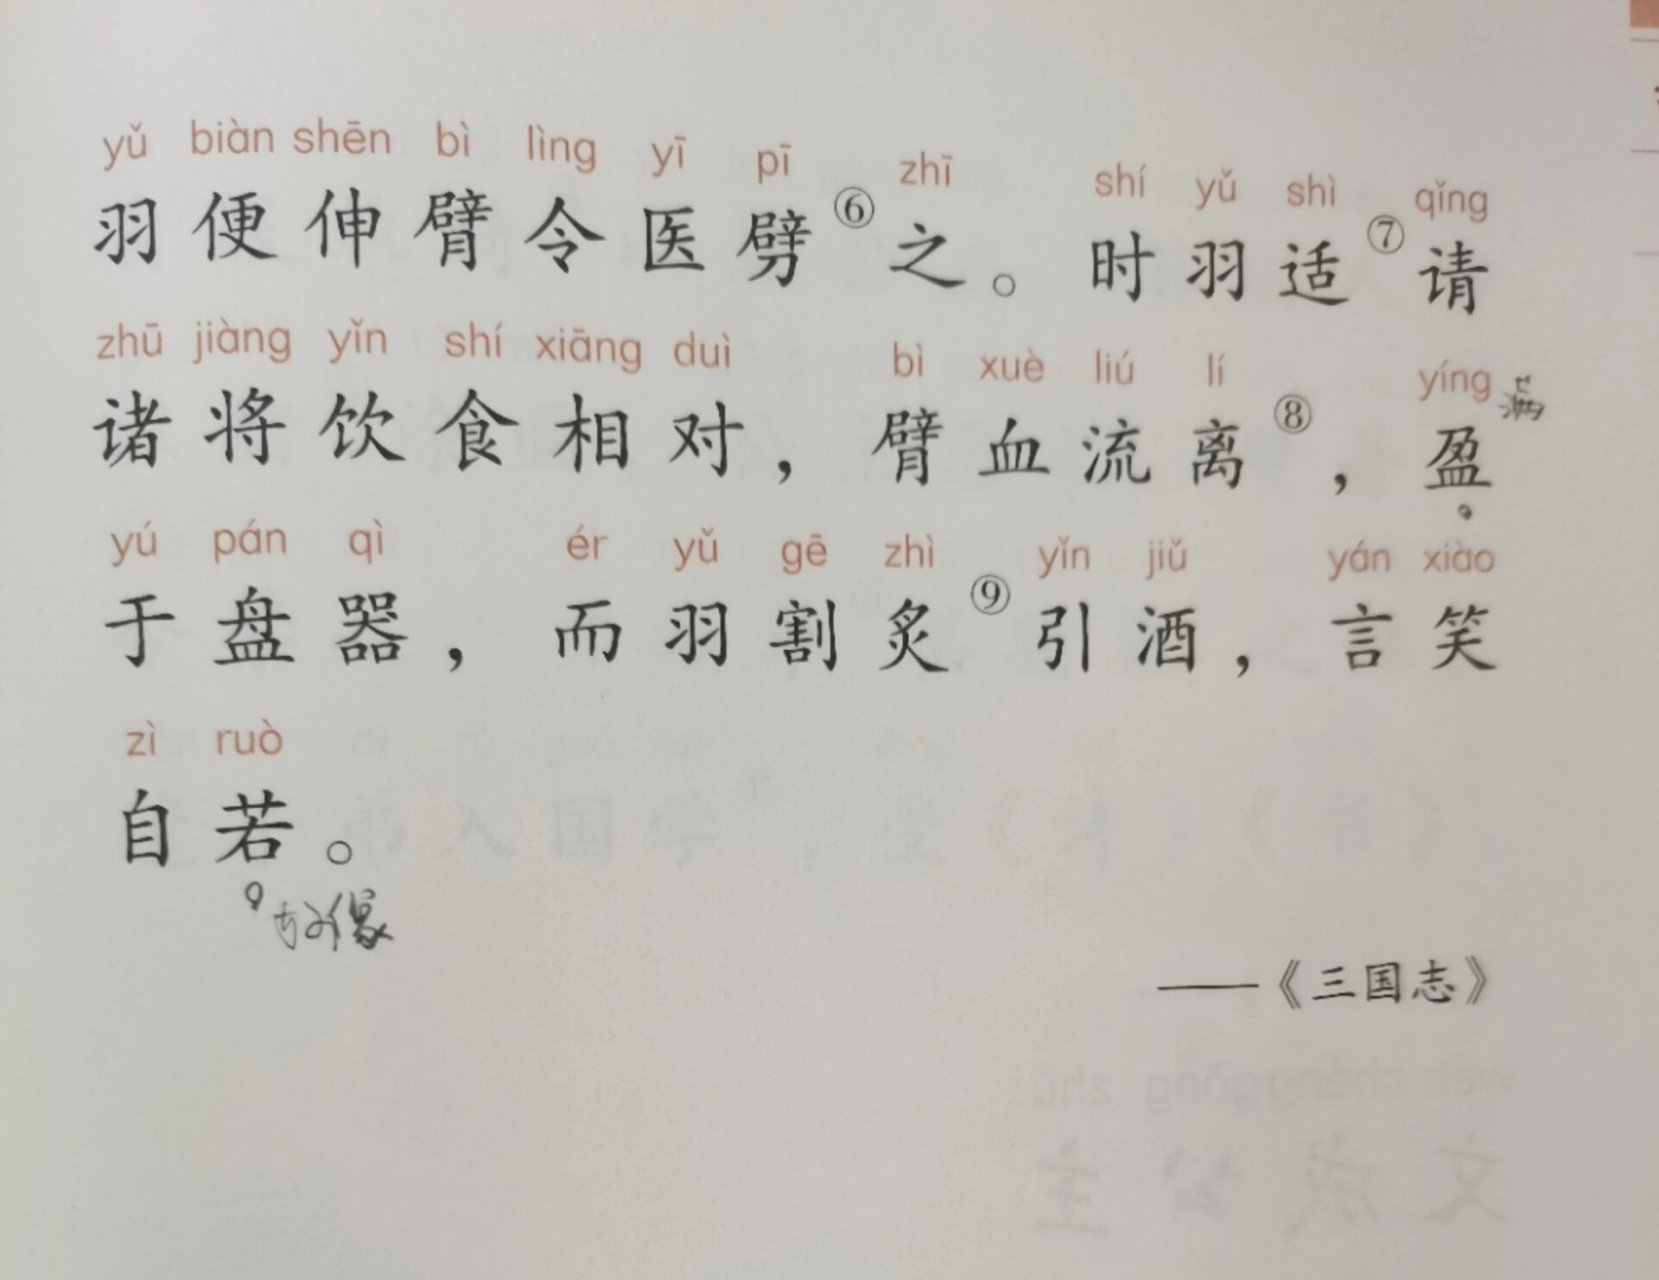 yǔ biàn shēn bì lìng yī pī zhī shí yǔ shì qǐng
羽便伸臂令医劈⑥之。时羽适⑦请
zhū jiàng yǐn shí xiāng duì bì xuè liú lí yíng
诸将饮食相对，臂血流离⑧，盈
满
yú pán qì ér yǔ gē zhì yǐn jiǔ yán xiào
于盘器，而羽割炙⑨引酒，言笑
zì ruò
自若。
好像
——《三国志》